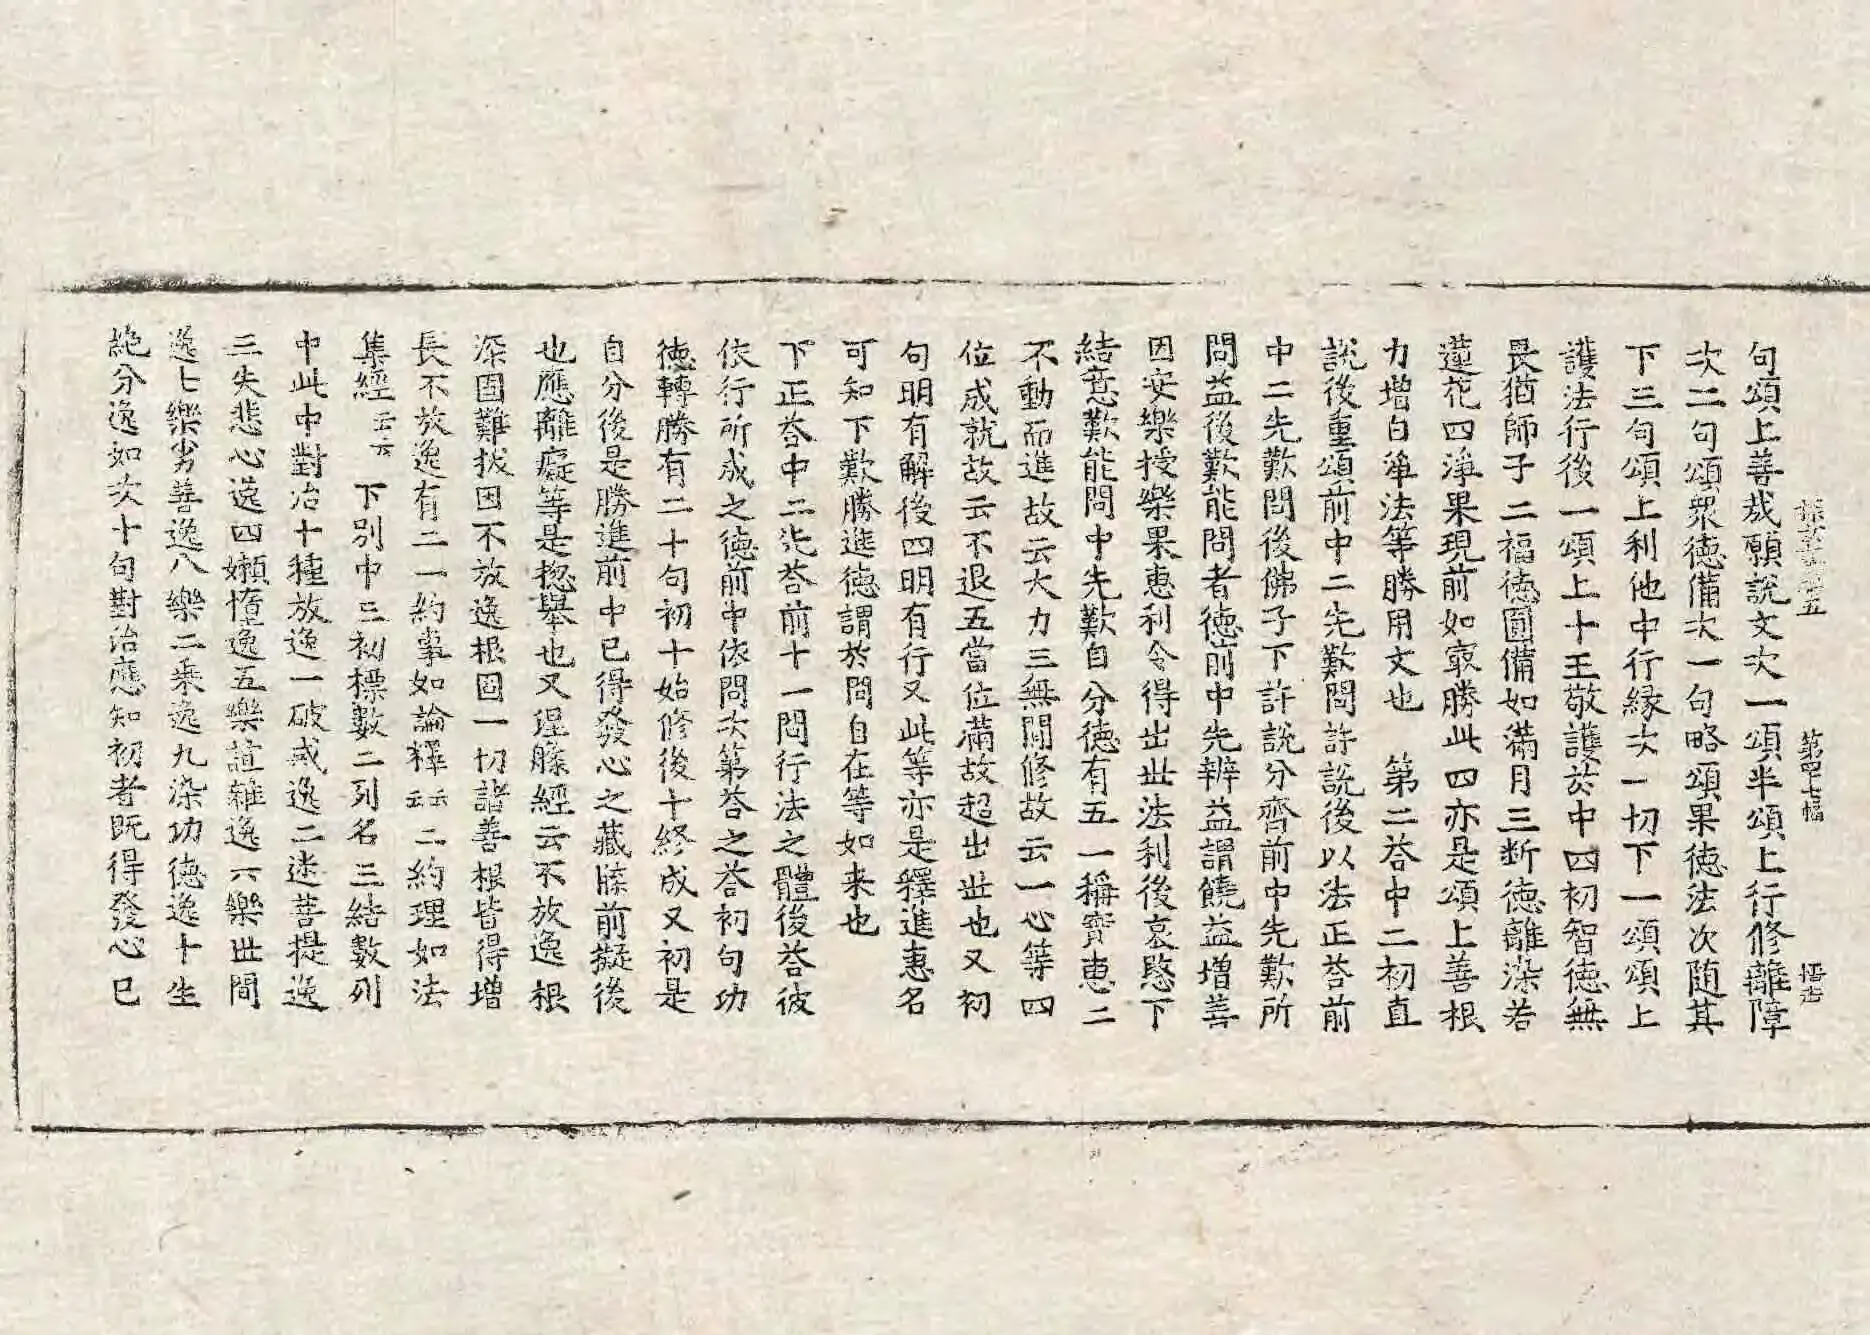 探玄五 第四七幅
句頌上善哉願說文次一頌半頌上行修離障
次二句頌衆德備次一句略頌果德法次随其
下三句頌上利他中行縁次一切下一頌頌上
護法行後一頌上十王敬護於中四初智德無
畏猶師子二福德圓備如滿月三断德離染若
蓮花四淨果現前如㝡勝此四亦是頌上善根
力增白淨法等勝用文也 第二荅中二初直
說後重頌前中二先歎問許說後以法正荅前
中二先歎問後佛子下許說分齊前中先歎所
問益後歎能問者德前中先辨益謂饒益增善
因安樂授樂果惠利令得出世法利後哀愍下
結意歎能問中先歎自分德有五一稱實惠二
不動而進故云大力三無間修故云一心等四
位成就故云不退五當位滿故超出世也又初
句明有解後四明有行又此等亦是釋進惠名
可知下歎勝進德謂於問自在等如来也
下正荅中二先荅前十一問行法之體後荅彼
依行所成之德前中依問次第荅之荅初句功
德轉勝有二十句初十始修後十終成又初是
自分後是勝進前中已得發心之藏牒前擬後
也應離癡等是揔舉也又涅槃經云不放逸根
深固難拔因不放逸根固一切諸善根皆得增
長不放逸有二一約事如論釋云云二約理如法
集經云云 下別中三初標數二列名三結數列
中此中對治十種放逸一破戒逸二迷菩提逸
三失悲心逸四嬾惰逸五樂諠雜逸六樂世間
逸七樂劣善逸八樂二乘逸九染功德逸十生
絶分逸如次十句對治應知初者既得發心已